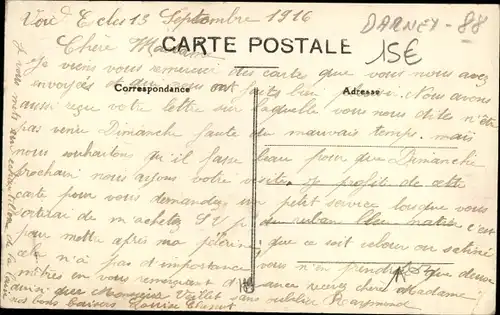 Voie Eclus 13 Septembre 1916
DARNEY - 88
15€
Chère Madame
CARTE POSTALE
Je viens vous remercier des cartes que vous nous avez
envoyés et qui nous ont fait bien plaisir. Nous avons
Correspondance
Adresse
aussi reçue votre lettre sur laquelle vous nous dites n'être
pas venu Dimanche faute du mauvais temps. mais
nous souhaitons qu'il fasse beau pour que Dimanche
prochain nous ayons votre visite. Je profit de cette
carte pour vous demander un petit service lorsque vous
de m'acheter S.V.P. un ruban bleu
pour mettre après ma pèlerine que ce soit velours ou satiné
cela n'a pas d'importance vous n'en prendrez que deux
mètres en vous remerciant d'avance recevez chère Madame
ainsi que Monsieur sans oublier Raymond
nos bons baisers Louise